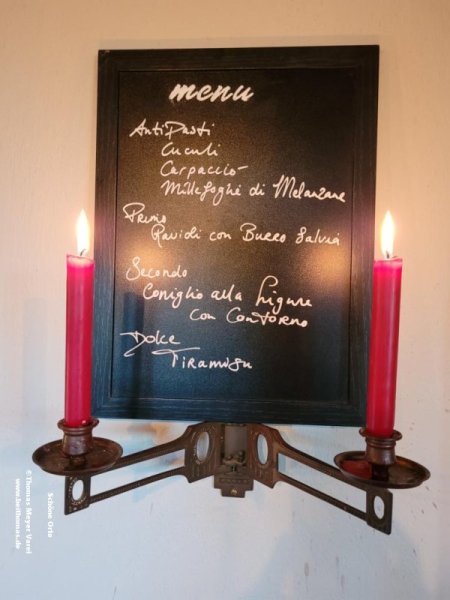 menu
AntiPasti
Cuculi
Carpaccio
Millefoghi di Melanzane
Primo
Ravidi con Burro Salvia
Secondo
Coniglio alla Ligure
con Contorno
Dolce
Tiramisu
Schöne Orte
©Thomas Meyer Varel
www.beithomas.de